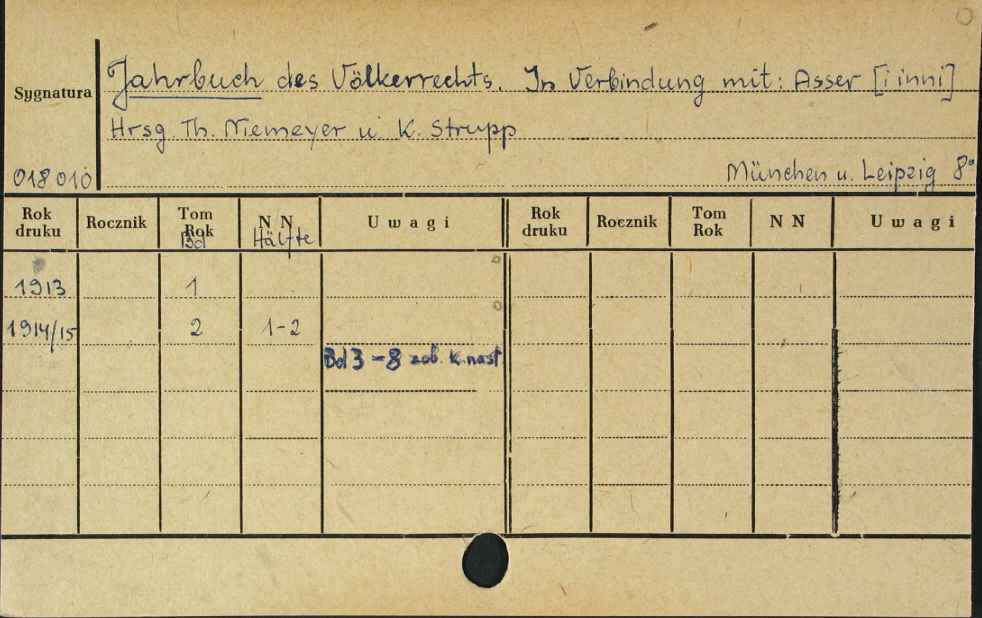 Sygnatura
Jahrbuch des Völkerrechts. In Verbindung mit: Asser [i inni]
Hrsg. Th. Niemeyer u. K. Strupp
018010
München u. Leipzig 8°
Rok druku Rocznik Tom Rok N N Uwagi Rok druku Rocznik Tom Rok N N Uwagi
Bd Hälfte
1913 1
1914/15 2 1-2
Bd 3-8 zob. k. nast